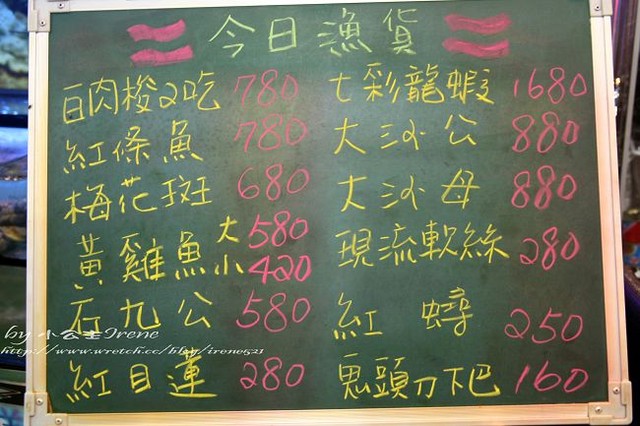 今日漁貨
白肉梭2吃 780
紅條魚 780
梅花斑 680
黃雞魚 大 580
小 420
石九公 580
紅目連 280
七彩龍蝦 1680
大沙公 880
大沙母 880
現流軟絲 280
紅蟳 250
鬼頭刀下巴 160
by 小公主Irene
http://www.wretch.cc/blog/irene521